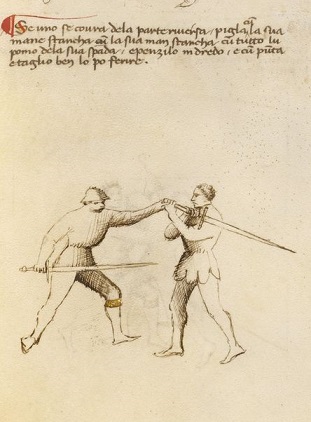 Se uno se covra dela parte riversa, pigla la sua
mane stancha cū la sua man stancha cū tutto lu
pomo dela sua spada, e penzilo in dredo, e cū pūta
e taglio ben lo po ferire.